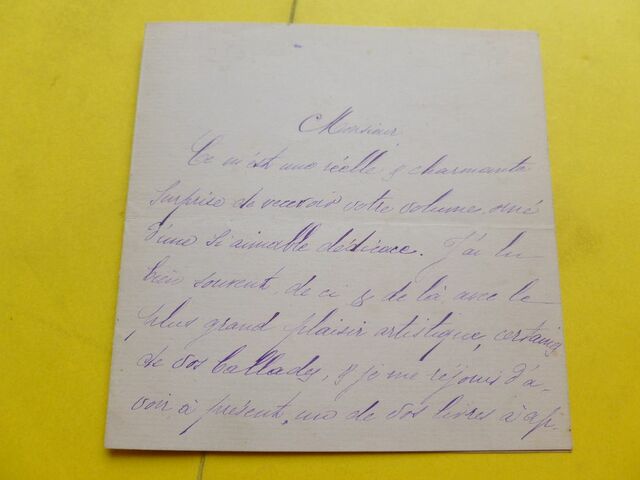 Monsieur
Ce m'est une réelle & charmante
surprise de recevoir votre volume, orné
d'une si aimable dédicace. J'ai lu
bien souvent, de ci & de là, avec le
plus grand plaisir artistique, certaines
de vos ballades, & je me réjouis d'a-
voir, à présent, un de vos livres à ap-